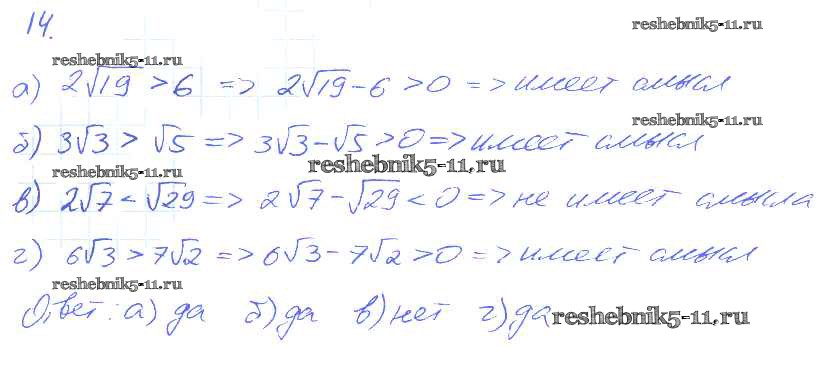 14.
reshebnik5-11.ru
reshebnik5-11.ru
а) 2√19 > 6 => 2√19 - 6 > 0 => имеет смысл
reshebnik5-11.ru
б) 3√3 > √5 => 3√3 - √5 > 0 => имеет смысл
reshebnik5-11.ru
reshebnik5-11.ru
в) 2√7 < √29 => 2√7 - √29 < 0 => не имеет смысла
г) 6√3 > 7√2 => 6√3 - 7√2 > 0 => имеет смысл
reshebnik5-11.ru
Ответ: а) да б) да в) нет г) да
reshebnik5-11.ru